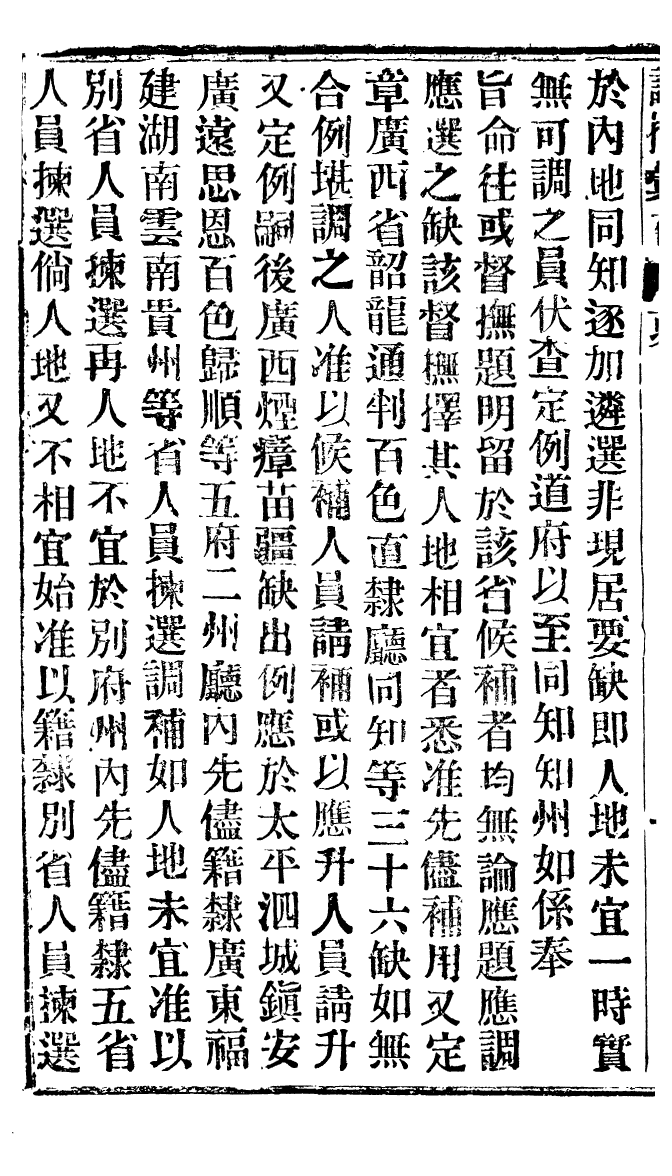 於內地同知逐加遴選非現居要缺即人地未宜一時實
無可調之員伏查定例道府以至同知知州如係奉
旨命往或督撫題明留於該省候補者均無論應題應調
應選之缺該督撫擇其人地相宜者悉准先儘補用又定
章廣西省韶龍通判百色直隸廳同知等三十六缺如無
合例堪調之人准以候補人員請補或以應升人員請升
又定例嗣後廣西煙瘴苗疆缺出例應於太平泗城鎮安
廣遠思恩百色歸順等五府二州廳內先儘籍隸廣東福
建湖南雲南貴州等省人員揀選調補如人地未宜准以
別省人員揀選再人地不宜於別府州內先儘籍隸五省
人員揀選倘人地又不相宜始准以籍隸別省人員揀選